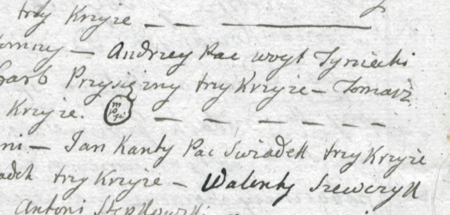 trzy Krzyże — — ———
Andrzey Pac woyt Tyniecki
Przysiężny trzy Krzyże — Tomasz
Krzyże. — — — — — —
— Jan Kanty Pac Swiadek trzy Krzyże
trzy Krzyże — Walenty Szewczyk
Antoni